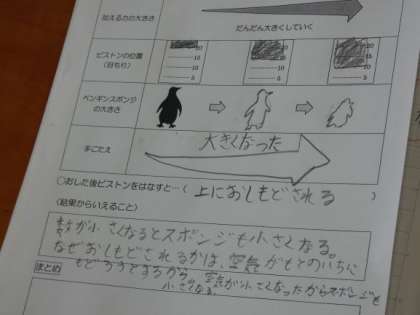 加える力の大きさ
だんだん大きくしていく
ピストンの位置
(目もり)
20
15
10
5
20
15
10
5
20
15
10
5
ペンギンスポンジ
の大きさ
手ごたえ
大きくなった
○おした後ピストンをはなすと…( 上におしもどされる )
(結果からいえること)
が小さくなるとスポンジも小さくなる。
なぜおしもどされるかは、空気がもとのいちに
もどろうとするから。空気が小さくなったからスポンジも
小さくなる
まとめ